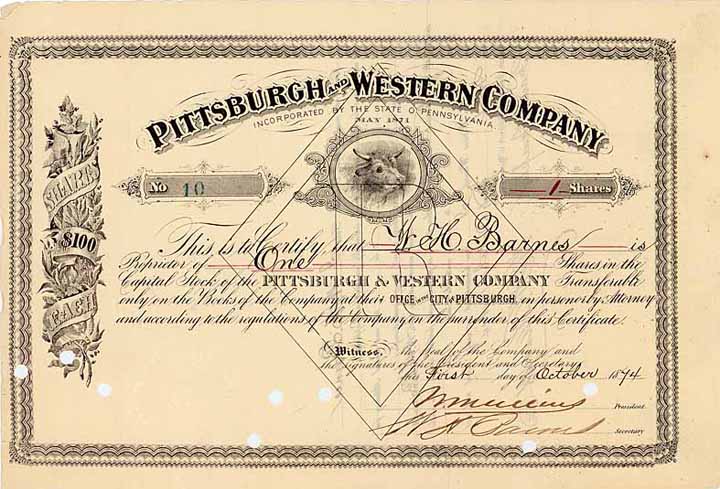 PITTSBURGH AND WESTERN COMPANY
INCORPORATED BY THE STATE OF PENNSYLVANIA
MAY 1871
No 10
1 Shares
SHARES
$100
EACH
This is to Certify that W H Barnes is
Proprietor of One Shares in the
Capital Stock of the PITTSBURGH & WESTERN COMPANY Transferable
only on the Books of the Company at their OFFICE IN THE CITY OF PITTSBURGH, in person or by Attorney
and according to the regulations of the Company on the surrender of this Certificate.
Witness, the Seal of the Company and
the signatures of the President and Secretary
this First day of October 1874
President.
W H Barnes
Secretary